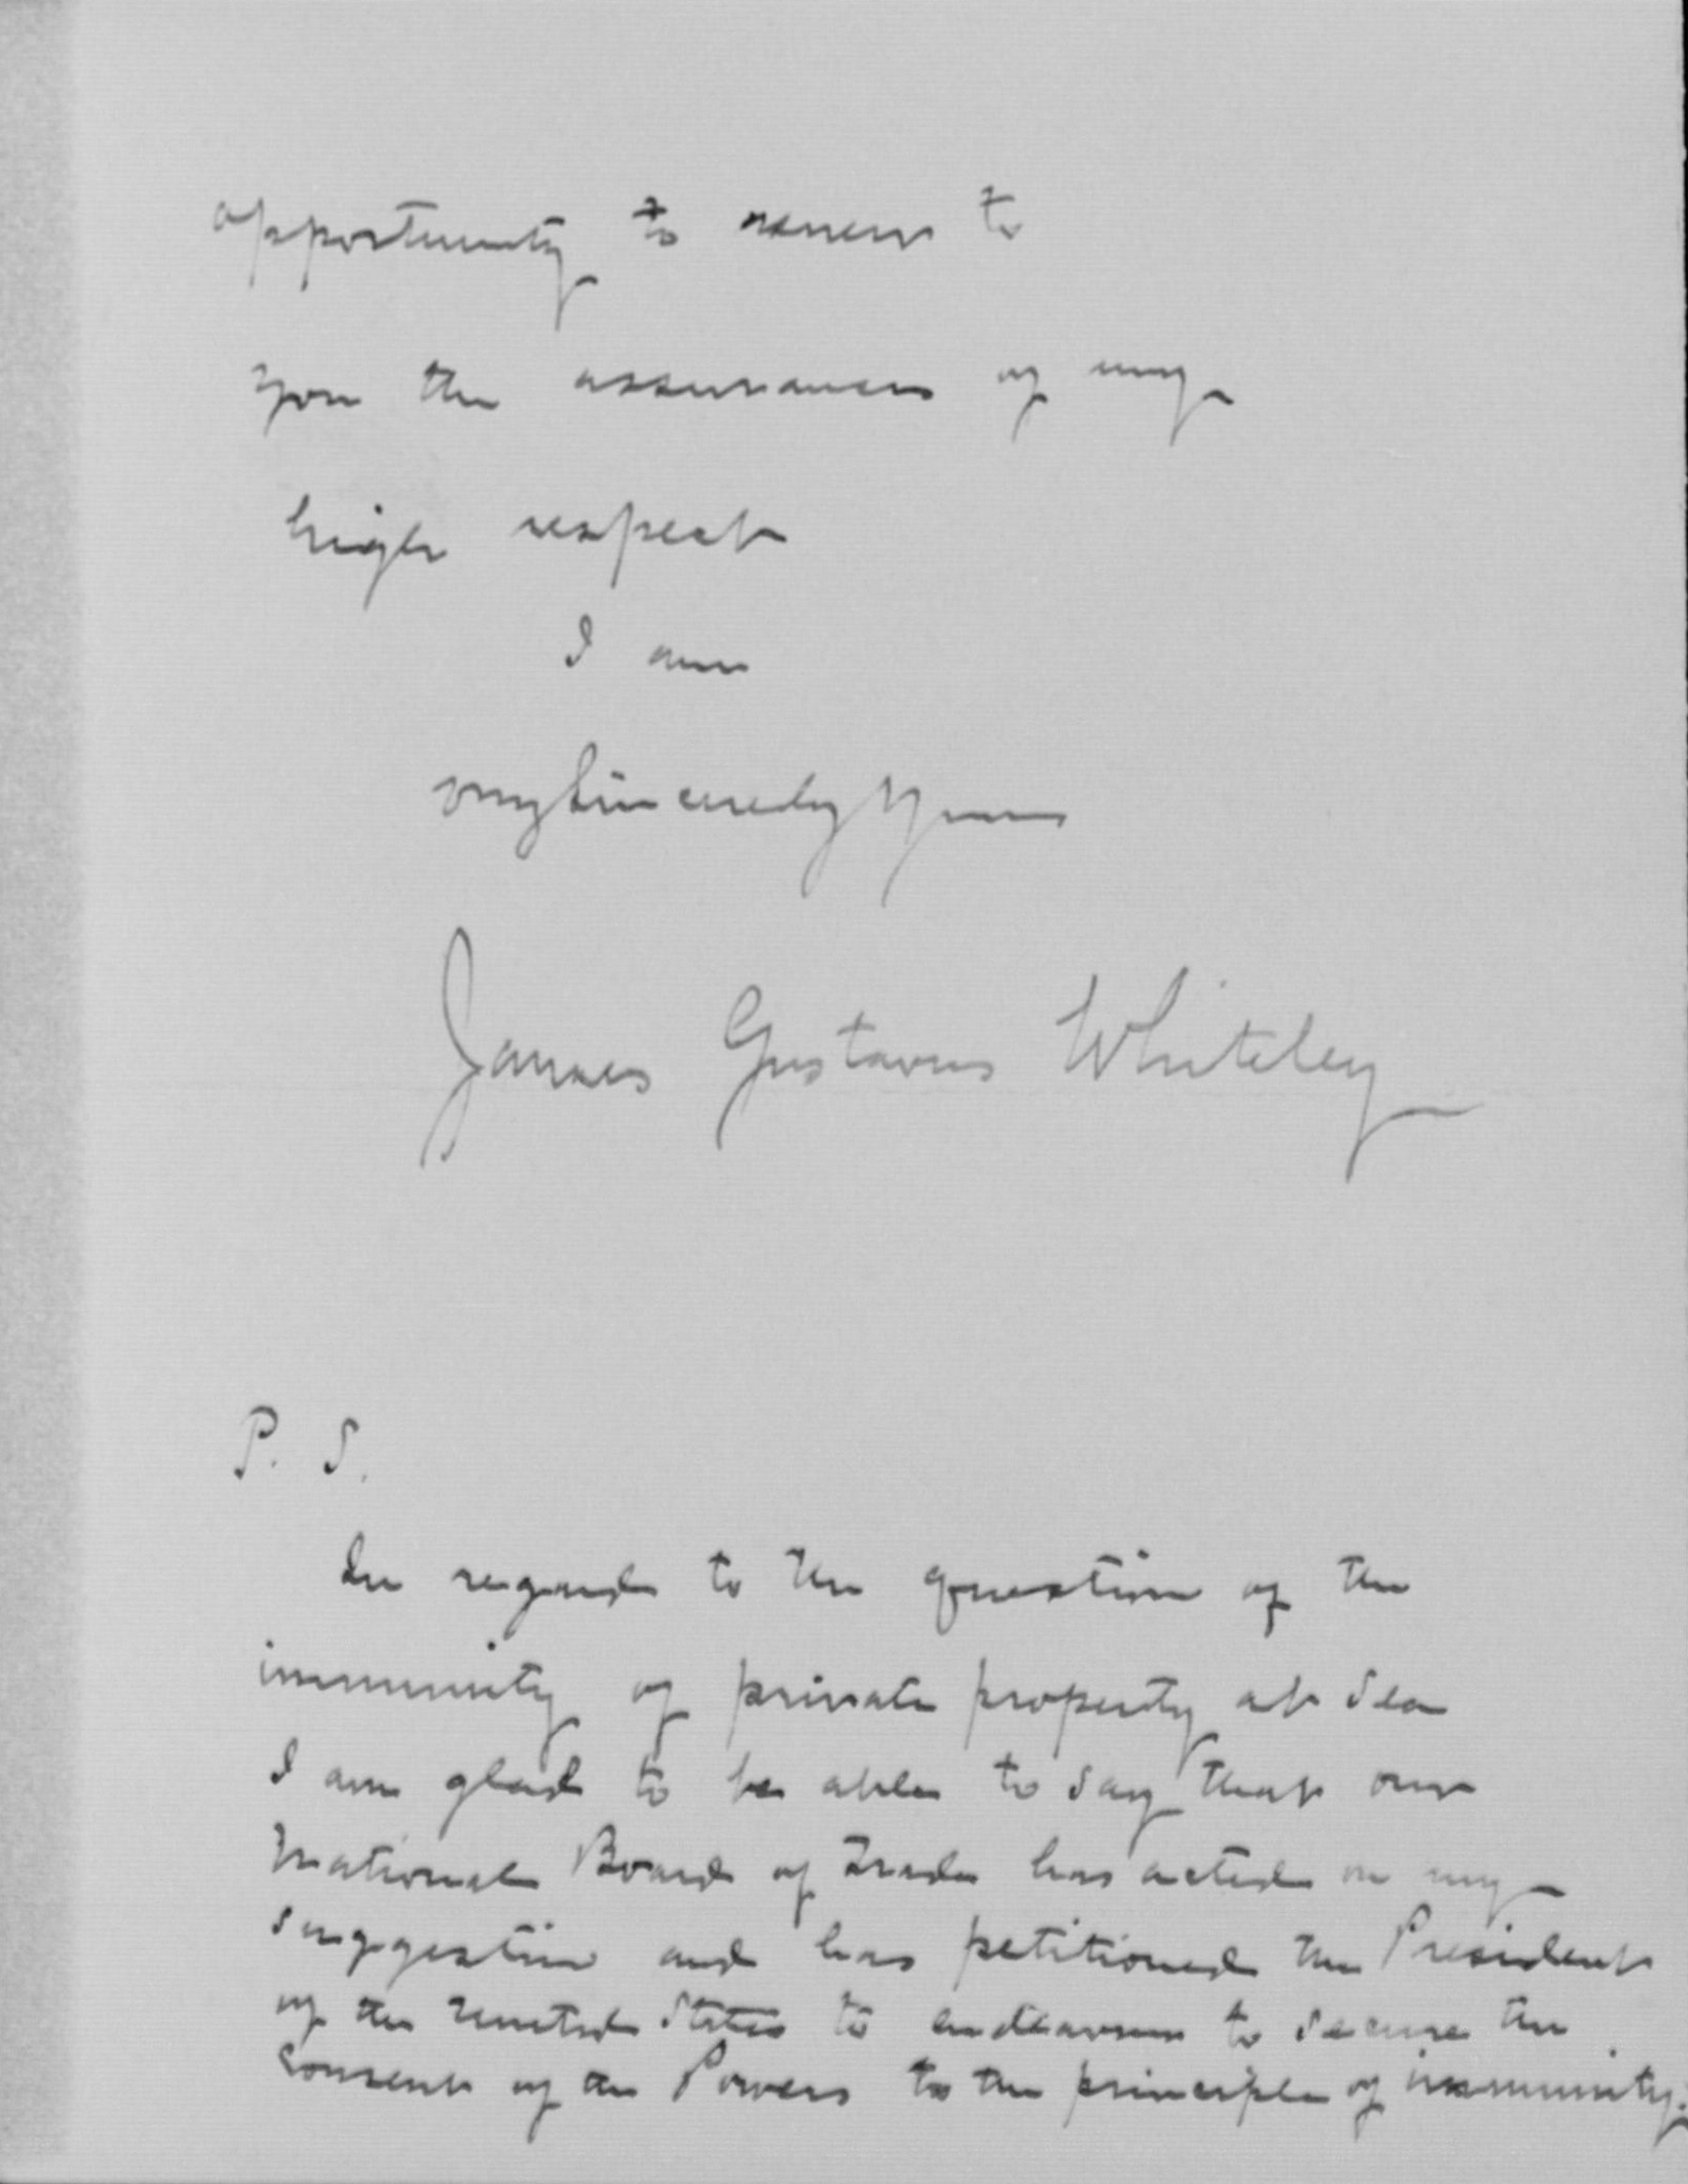 opportunity to renew to
you the assurances of my
high respect
I am
very sincerely yours
James Gustavus Whiteley
P. S.
In regard to the question of the
immunity of private property at Sea
I am glad to be able to say that our
National Board of Trade has acted on my
suggestion and has petitioned the President
of the United States to endeavour to secure the
consent of the Powers to the principle of immunity.